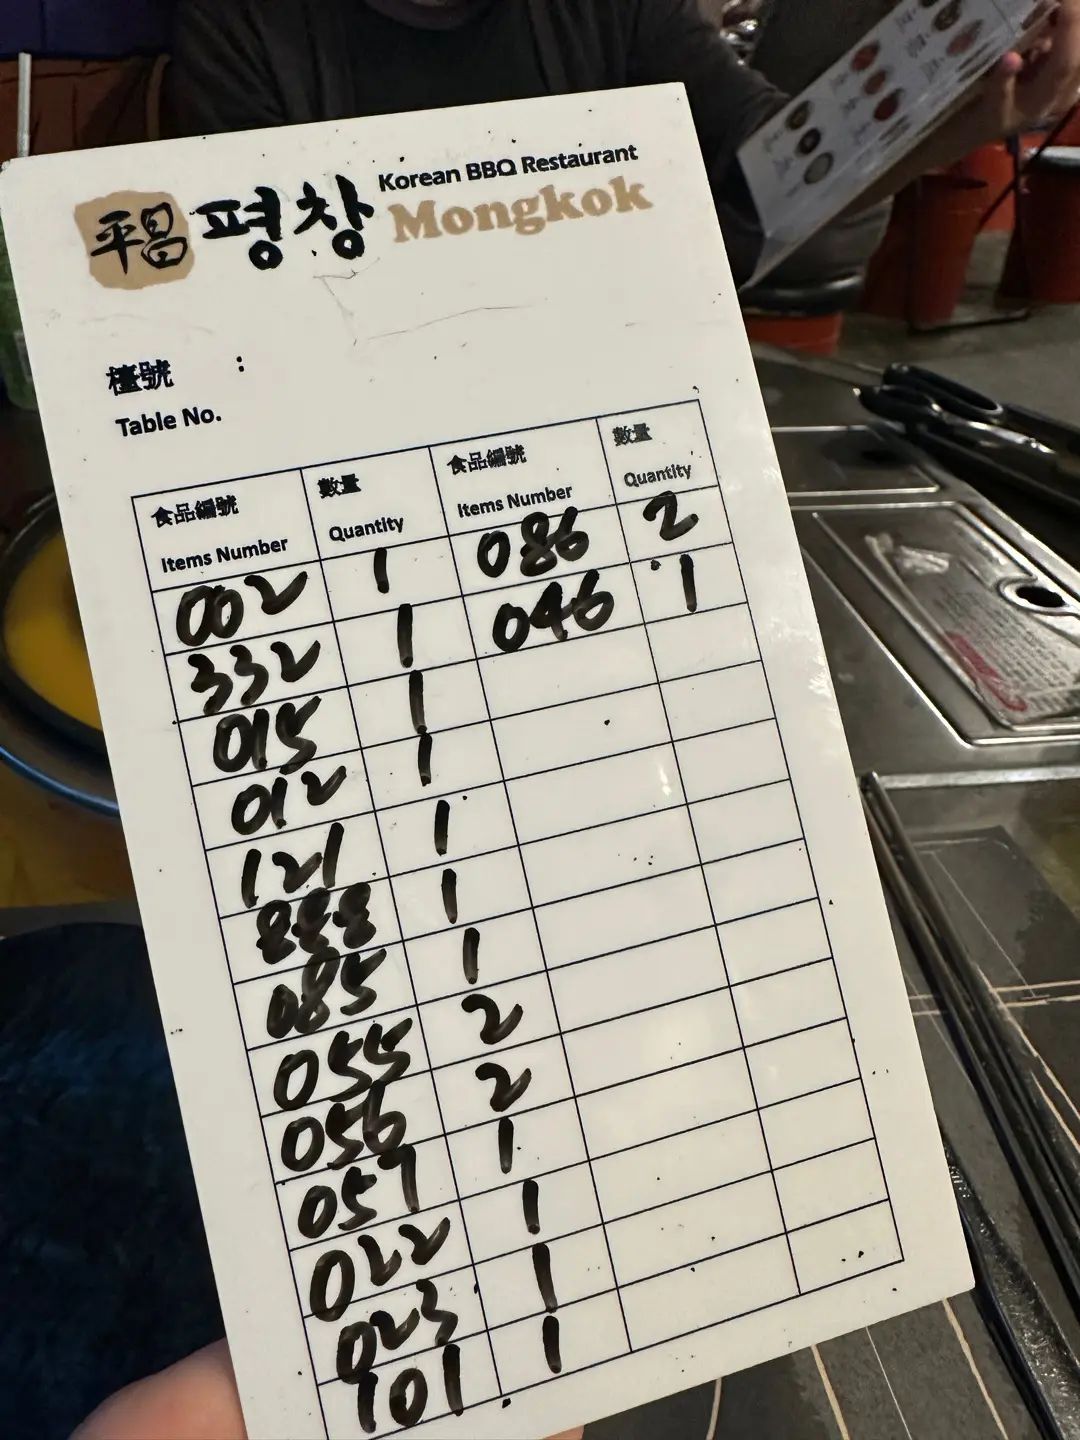 平昌 평창 Korean BBQ Restaurant
Mongkok
檯號 :
Table No.
食品編號 數量 食品編號 數量
Items Number Quantity Items Number Quantity
002 1 086 2
332 1 046 1
015 1
012 1
121 1
888 1
085 1
055 2
056 2
057 1
022 1
023 1
101 1